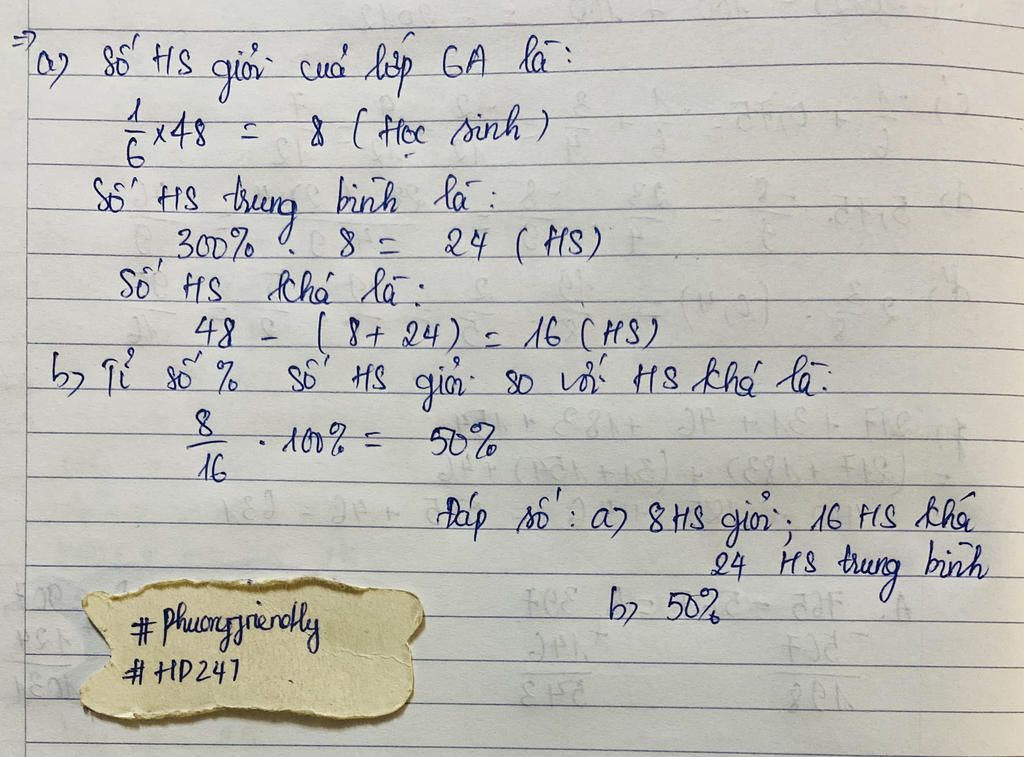 => a) Số HS giỏi cuả lớp 6A là:
1/6 × 48 = 8 (Học sinh)
Số HS trung bình là:
300% . 8 = 24 (HS)
Số HS khá là:
48 - (8 + 24) = 16 (HS)
b) Tỉ số % số HS giỏi so với HS khá là:
8/16 . 100% = 50%
Đáp số: a) 8 HS giỏi; 16 HS khá
24 HS trung bình
b) 50%
# Phuongfriendly
# HD247